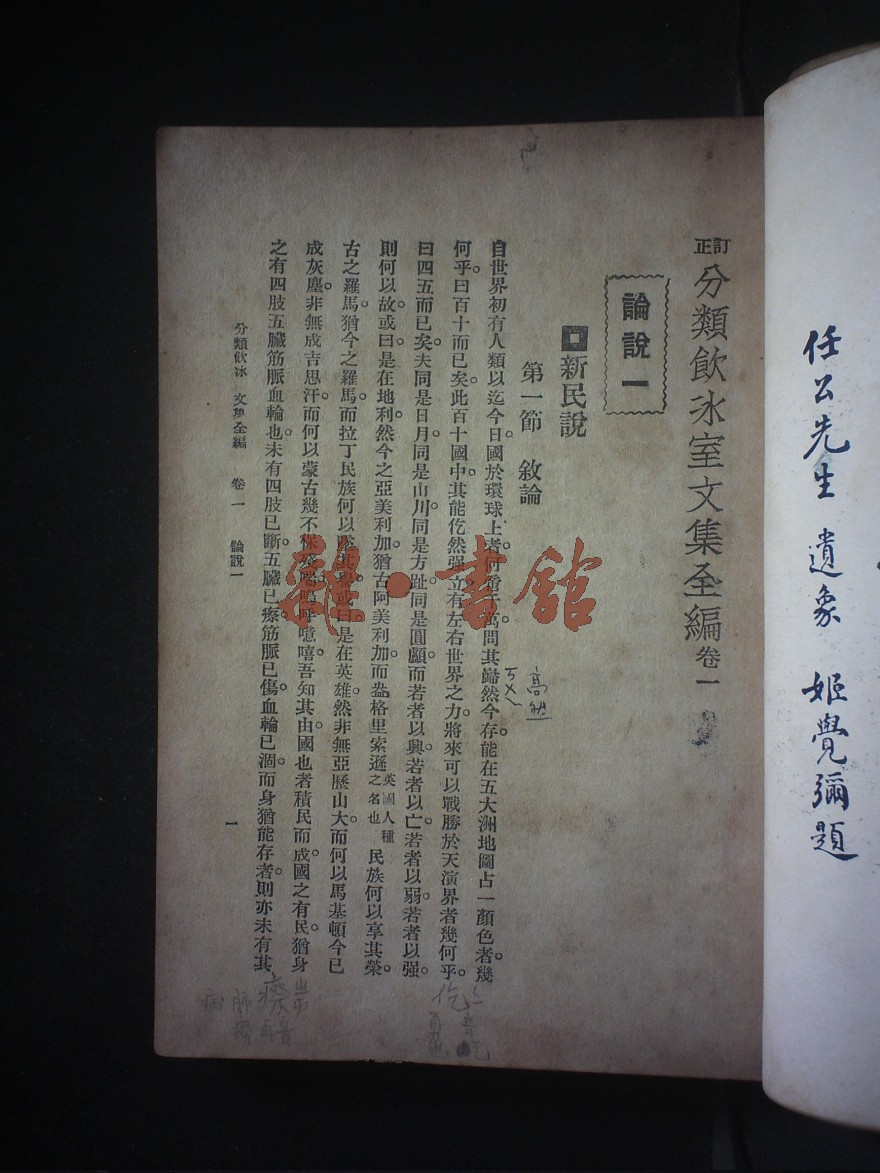 任公先生 遺象 姬覺彌題
訂正分類飲冰室文集全編卷一
論說一
新民說
第一節 敘論
自世界初有人類以迄今日。國於環球上者。何啻千萬。問其巋然今存。能在五大洲地圖占一顏色者。幾
何乎。曰百十而已矣。此百十國中。其能仡然强立。有左右世界之力。將來可以戰勝於天演界者。幾何乎。
曰四五而已矣。夫同是日月。同是山川。同是方趾。同是圓顱。而若者以興。若者以亡。若者以弱。若者以强。
則何以故。或曰。是在地利。然今之亞美利加。猶古阿美利加。而盎格里索遜英國人種之名也民族何以享其榮。
古之羅馬。猶今之羅馬。而拉丁民族何以墜其譽。或曰。是在英雄。然非無亞歷山大。而何以馬基頓今已
成灰塵。非無成吉思汗。而何以蒙古幾不保殘喘。嗚呼噫嘻。吾知其由。國也者。積民而成。國之有民。猶身
之有四肢五臟筋脈血輪也。未有四肢已斷。五臟已瘵。筋脈已傷。血輪已涸。而身猶能存者。則亦未有其
分類飲冰 文集全編 卷一 論說一
一
雜·書館
仡
瘵